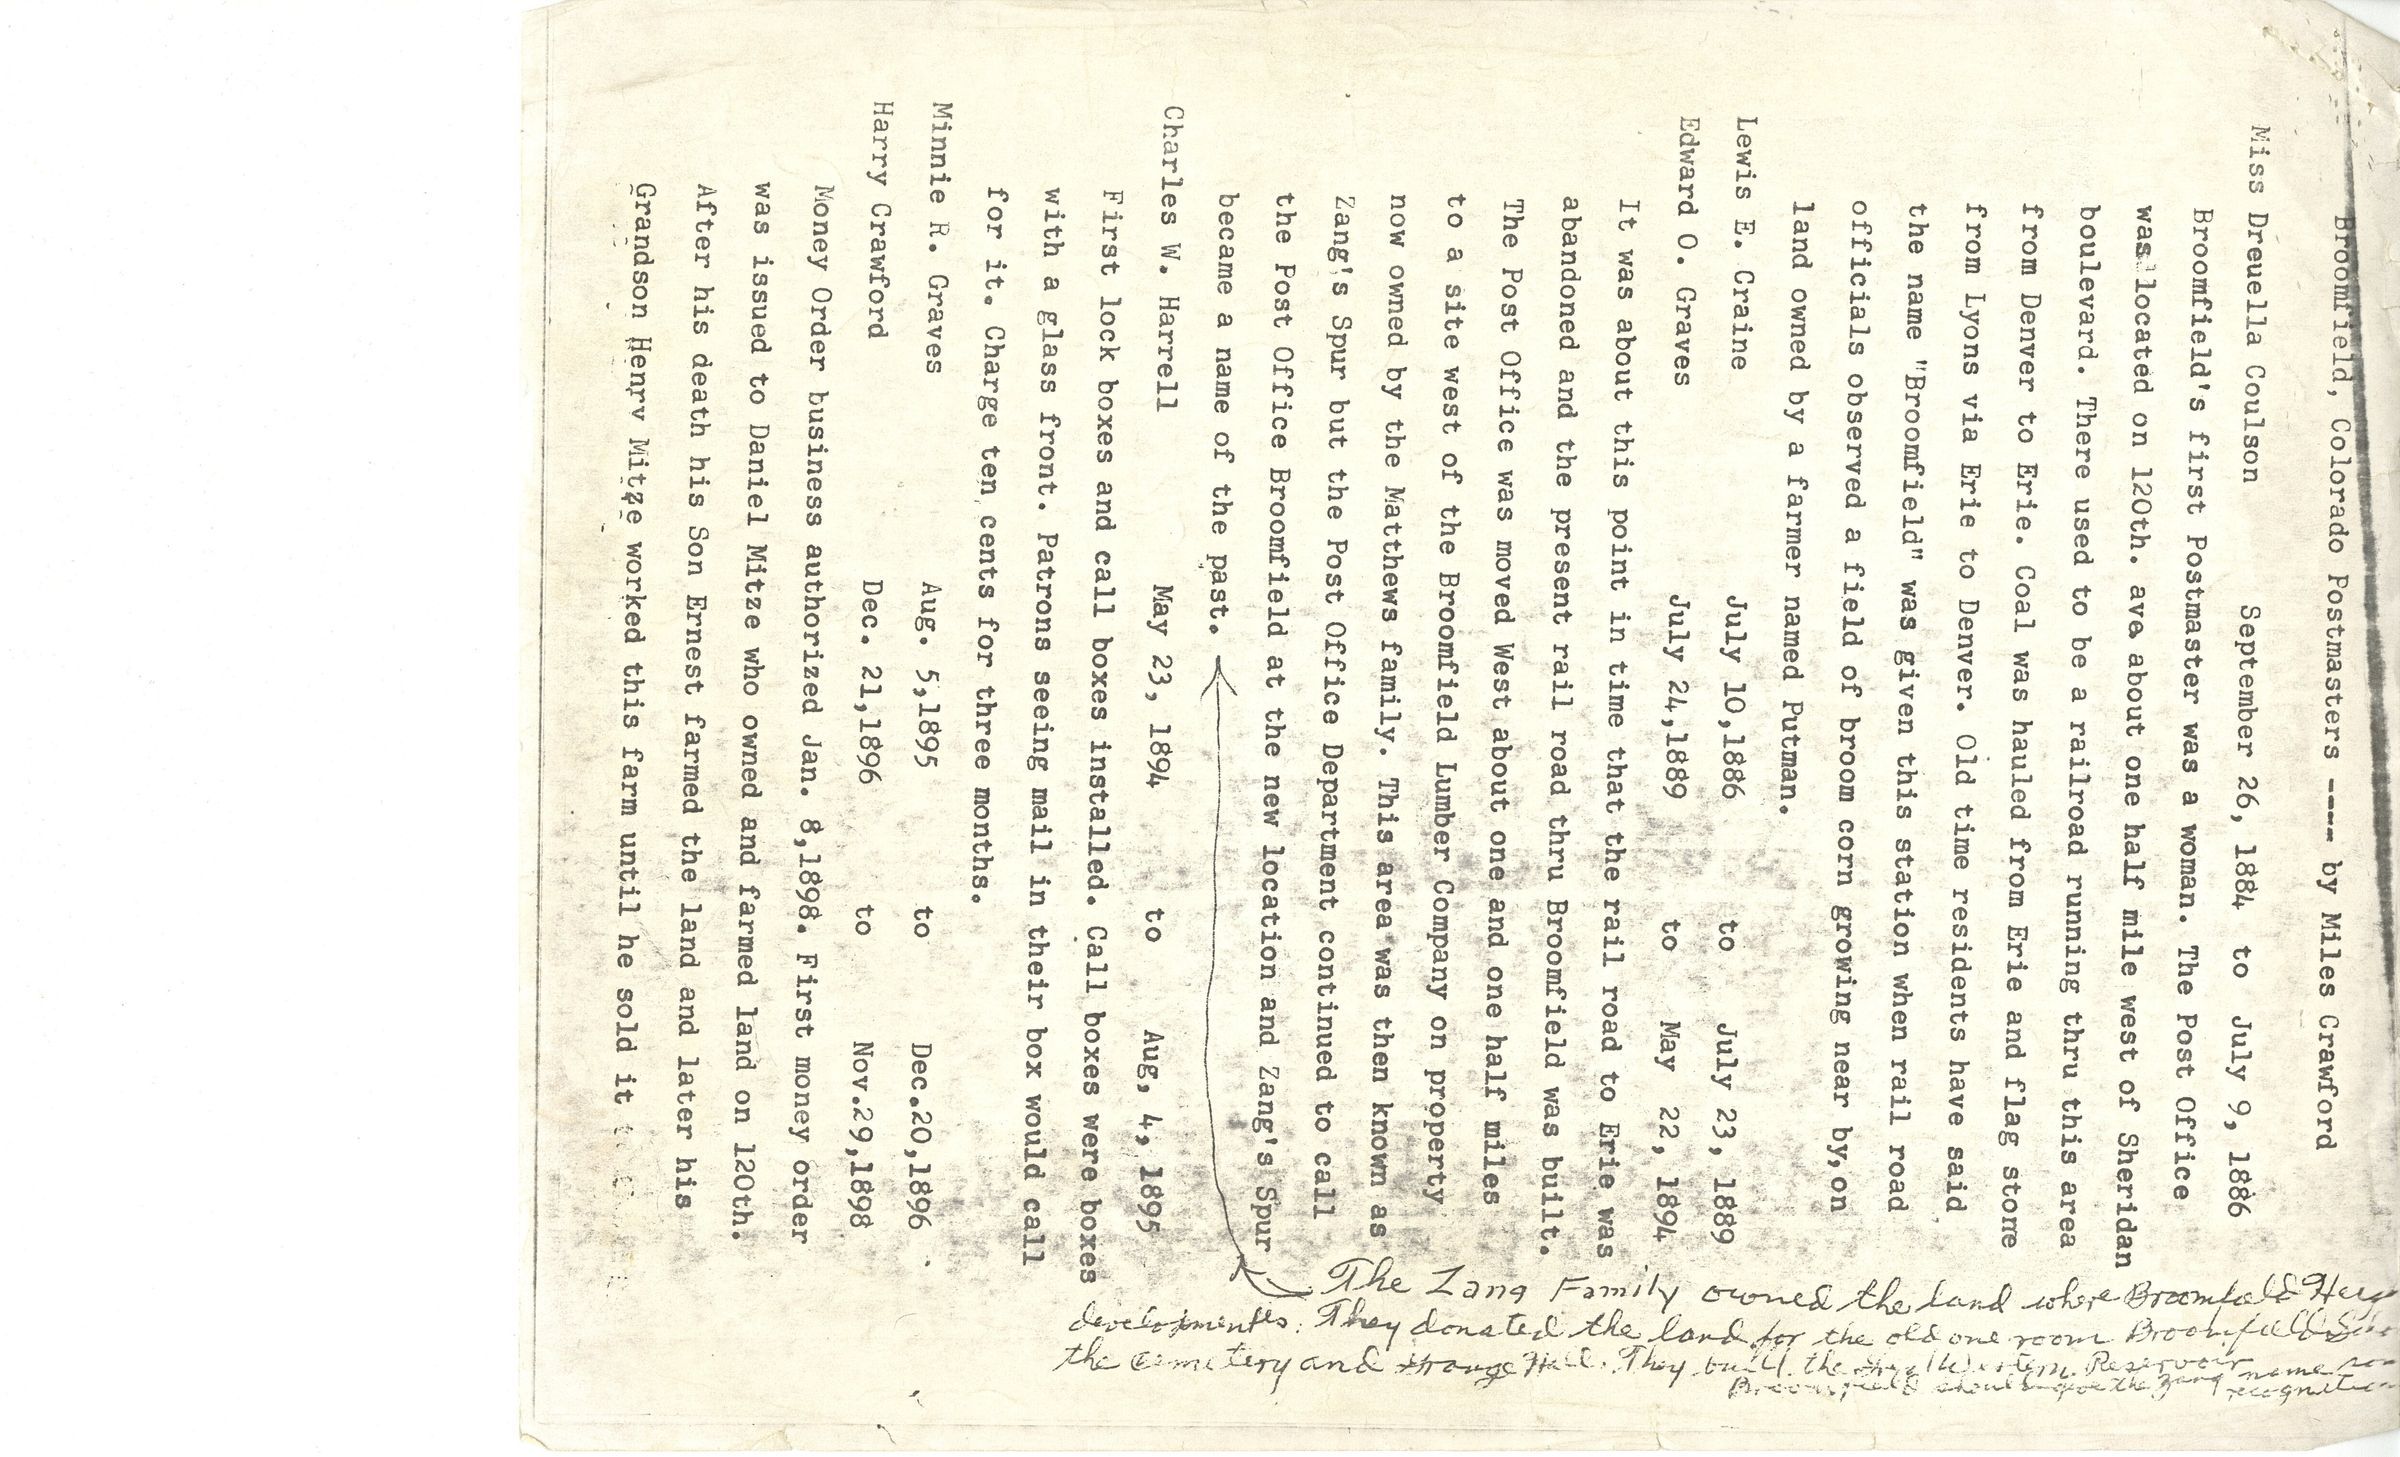 Broomfield, Colorado Postmasters ---- by Miles Crawford
Miss Dreuella Coulson September 26, 1884 to July 9, 1886
Broomfield's first Postmaster was a woman. The Post Office
was located on 120th. ave. about one half mile west of Sheridan
boulevard. There used to be a railroad running thru this area
from Denver to Erie. Coal was hauled from Erie and flag stome
from Lyons via Erie to Denver. Old time residents have said
the name "Broomfield" was given this station when rail road
officials observed a field of broom corn growing near by,on
land owned by a farmer named Putman.
Lewis E. Craine July 10,1886 to July 23, 1889
Edward O. Graves July 24,1889 to May 22, 1894
It was about this point in time that the rail road to Erie was
abandoned and the present rail road thru Broomfield was built.
The Post Office was moved West about one and one half miles
to a site west of the Broomfield Lumber Company on property
now owned by the Matthews family. This area was then known as
Zang's Spur but the Post Office Department continued to call
the Post Office Broomfield at the new location and Zang's Spur
became a name of the past.
Charles W. Harrell May 23, 1894 to Aug, 4, 1895
First lock boxes and call boxes installed. Call boxes were boxes
with a glass front. Patrons seeing mail in their box would call
for it. Charge ten cents for three months.
Minnie R. Graves Aug. 5,1895 to Dec.20,1896
Harry Crawford Dec. 21,1896 to Nov.29,1898
Money Order business authorized Jan. 8,1898. First money order
was issued to Daniel Mitze who owned and farmed land on 120th.
After his death his Son Ernest farmed the land and later his
Grandson Henry Mitze worked this farm until he sold it
The Zang Family owned the land where Broomfield
developments. They donated the land for the old one room Broomfield
the cemetery and Grange Hall. They built the Great Western Reservoir
Broomfield should give the Zang name recognition